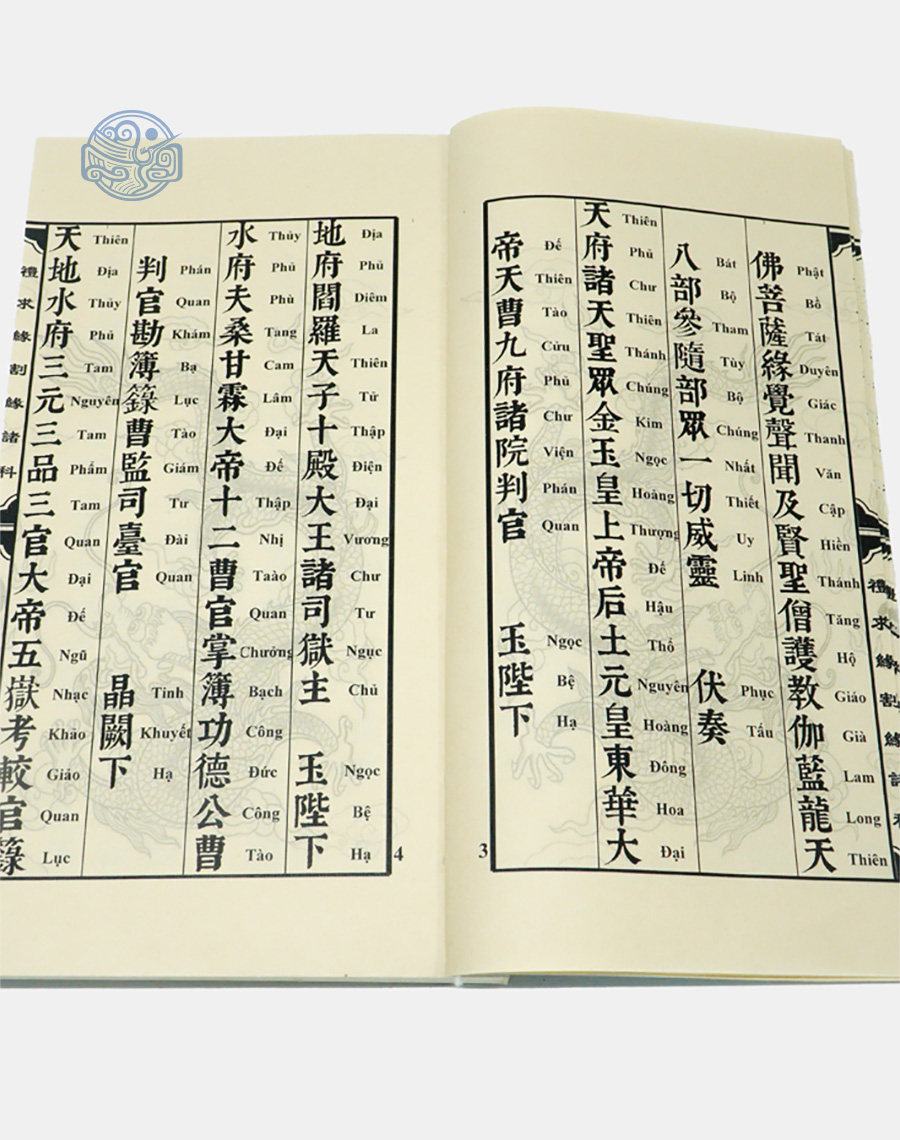 禮求緣割緣諸科
佛菩薩緣覺聲聞及賢聖僧護教伽藍龍天
Phật Bồ Tát Duyên Giác Thanh Văn Cập Hiền Thánh Tăng Hộ Giáo Già Lam Long Thiên
八部參隨部眾一切威靈 伏奏
Bát Bộ Tham Tùy Bộ Chúng Nhất Thiết Uy Linh Phục Tấu
天府諸天聖眾金玉皇上帝后土元皇東華大
Thiên Phủ Chư Thiên Thánh Chúng Kim Ngọc Hoàng Thượng Đế Hậu Thổ Nguyên Hoàng Đông Hoa Đại
帝天曹九府諸院判官 玉陛下
Đế Thiên Tào Cửu Phủ Chư Viện Phán Quan Ngọc Bệ Hạ
3
地府閻羅天子十殿大王諸司獄主 玉陛下
Địa Phủ Diêm La Thiên Tử Thập Điện Đại Vương Chư Tư Ngục Chủ Ngọc Bệ Hạ
水府夫桑甘霖大帝十二曹官掌簿功德公曹
Thủy Phủ Phù Tang Cam Lâm Đại Đế Thập Nhị Taào Quan Chưởng Bạch Công Đức Công Tào
判官勘簿籙曹監司臺官 晶闕下
Phán Quan Khám Bạ Lục Tào Giám Tư Đài Quan Tinh Khuyết Hạ
天地水府三元三品三官大帝五嶽考較官籙
Thiên Địa Thủy Phủ Tam Nguyên Tam Phẩm Tam Quan Đại Đế Ngũ Nhạc Khảo Giảo Quan Lục
禮求緣割緣諸科
4